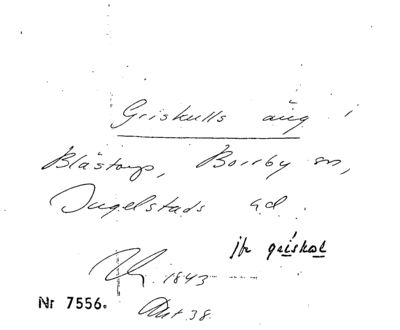 Griskulls äng
Blästorp, Borrby sn,
Ingelstads hd.
jfr griskol
1843
Nr 7556.
Akt 38.